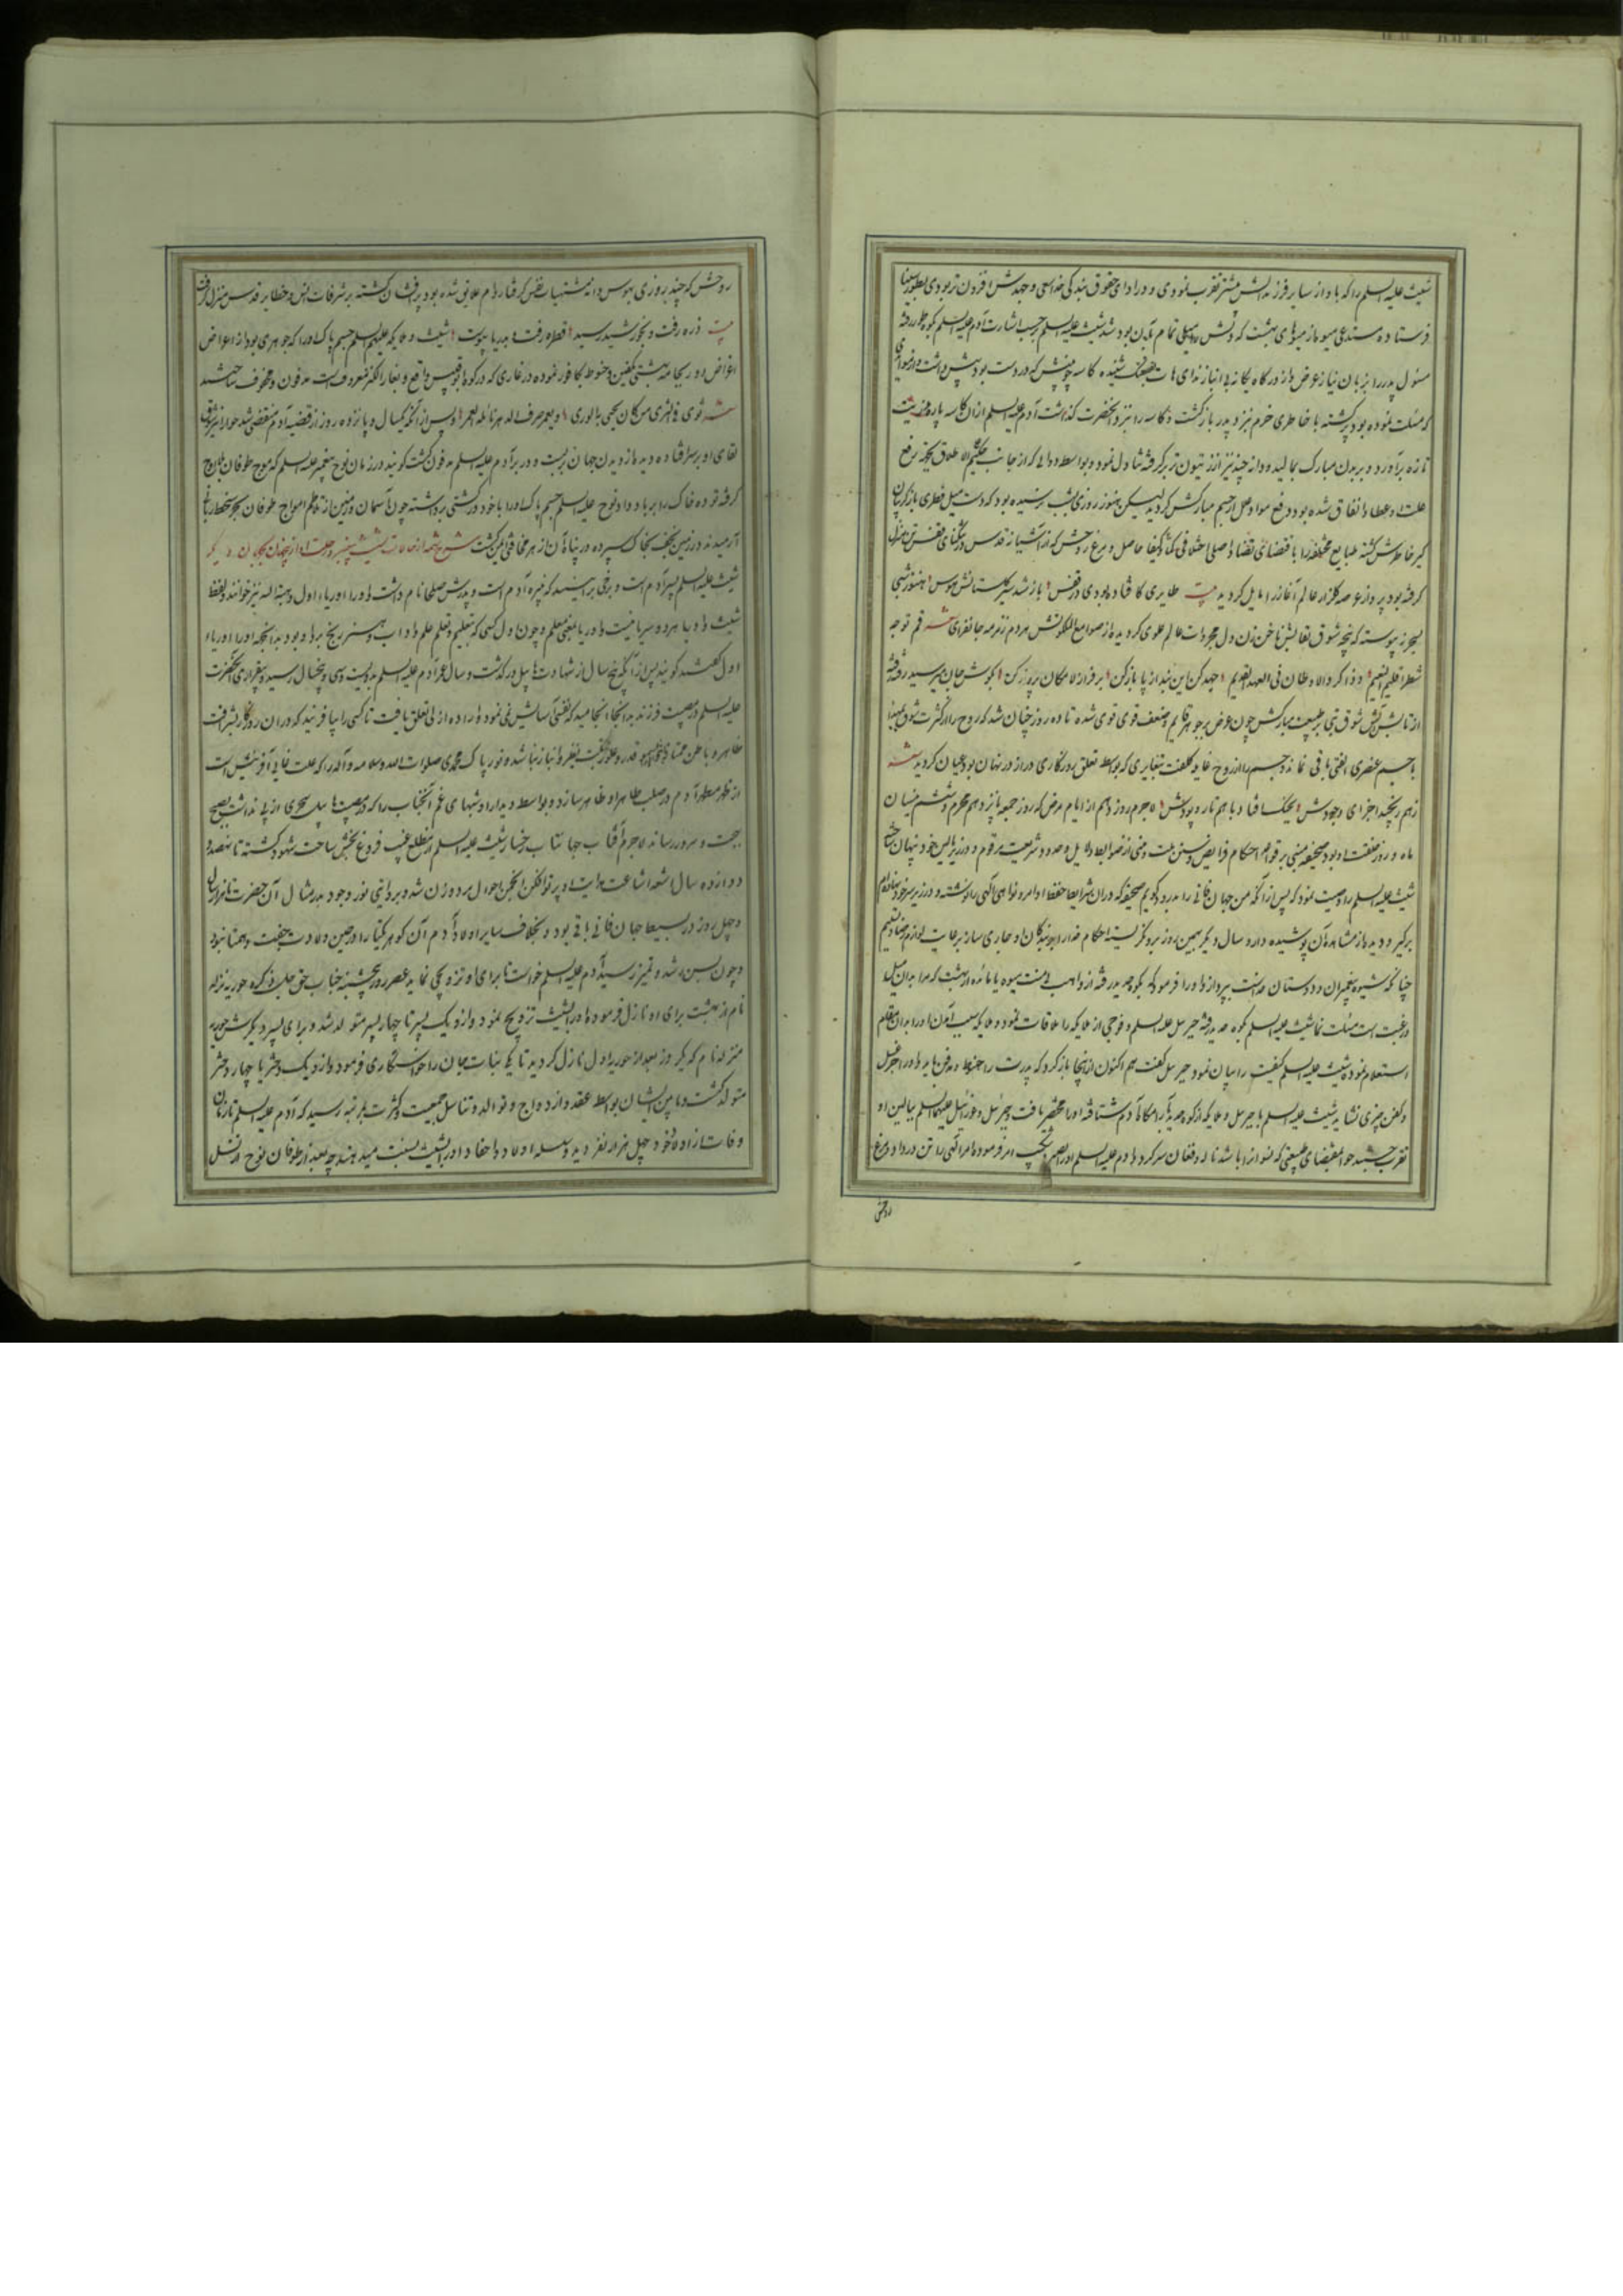 شیث علیه السلم را که با و از سایر فرزندانش بیشتر تقرب نمودی و در ادای حقوق بندگی خدا سعی و جهدش افزون تر بودی بطور سینا
فرستاده مستدعی میوه از میوهای بهشت که دلش را میلی تمام بآن بود شد شیث علیه السلم حسب اشارت آدم علیه السلم بکوه طور رفته
مسئول پدر را بزبان نیاز عرض از درگاه یگانه بی انباز ندای هات شنیده کاسه چوبینش که در دست بود پیش داشت
که مسئلت نموده بود پر گشته با خاطری خرم نزد پدر بازگشت و کاسه را نزد آنحضرت گذاشت آدم علیه السلم ازان کاسه پاره روغن زیت
تازه برآورد و بر بدن مبارک بمالید و دانه چند نیز از زیتون تر برگرفته تناول نمود و بواسطه دوائی که از جانب حکیم علی الاطلاق بجهة رفع
علت او عطا و انفاق شده بود دفع مواد مرض از جسم مبارکش گردید لیکن هنوز روزی بشب نرسیده بود که دست میل فطری باز گریبان
گیر خاطرش گشته طبایع مختلفه را باقتضای تقضای اصلی اختلافی حاصل و مرغ روحش که از آشیانه قدس در تنگنای قفس تن منزل
گرفته بود پرواز عرصه گلزار عالم آغاز را مایل گردید بیت طایری کافتاده بودی در قفس باز شد سیر گلستانش هوس هنوز شبی
بسحر نه پیوسته که پنجه شوق لقایش ناخن زن دل مجردات عالم علوی گردیده از صوامع الملکوتش هر دم زمزمه جانفزای شعر قم توجه
شطر اقلیم النعیم و ذاکر الاوطان فی العهد القدیم جهد کن این بند از پا باز کن بر فراز لامکان پرواز کن بگوش جان میرسید رفته رفته
از تابش آتش شوق تبی بر طبیعت مبارکش چون عرض بر جوهر قایم و ضعف قوی قوی شده تا ده روز چنان شد که روح را از کثرت شوق بمبدا
با جسم عنصری الفتی باقی نمانده و جسم را از روح غایه کلفت بتغایری که بواسطه تعلق روزگاری دراز در نهان بود عیان گردید شعر
ز هم ریخت اجزای وجودش بجنگ افتاد باهم تار و پودش لاجرم روز دهم از ایام مرض که روز جمعه پانزدهم محرم و ششم نیسان
ماه و روز خلقت او بود صحیفه مبنی بر قواعد احکام فرایض و سنن ملت و منبی از ضوابط دلایل و حدود شریعت مرقوم و در زیر بالین خود نهان
شیث علیه السلم را وصیت نمود که پس از آنکه من جهان فانی را بدرود گویم صحیفه که دران شرایط حفظ اوامر و نواهی الهی را نوشته و در زیر سر خود نهاده ام
برگیر و دیده از مشاهده آن پوشیده دار و سال دیگر بهمین روز برو نگریسته احکام خدا را بر بندگان او جاری ساز
چنانکه شیوه پیغمبران و دوستان خداست بپرداز و او را فرمود که بکوه رفته از واهب بی منت میوه یا مائده از بهشت که مرا بدان میل
و رغبت است مسئلت نما شیث علیه السلم بکوه رفته جبرئیل علیه السلم و فوجی از ملایکه را ملاقات نموده ملایکه سبب آمدن او را بدان مقام
استعلام نموده شیث علیه السلم کیفیت را بیان نمود جبرئیل گفت هم اکنون ازینجا بازگرد که پدرت را جز حنوط و مدفن نباید و او را جز غسل
و کفن چیزی نشاید شیث علیه السلم با جبرئیل و ملایکه از کوه بمکان آدم شتافته او را محتضر یافت و جبرئیل و عزرائیل علیهما السلم ببالین او
تقرب جستند حوا بمقتضای طبیعتی که نسوان را باشد ناله و فغان سر کرد آدم علیه السلم او را بصبر و شکیب امر فرموده امر الهی را تن در داد و مرغ
روحش
روحش که چند روزی بهوس دانه مشتهیات نفس گرفتار دام علایق شده بود پر افشان گشته بر شرفات انس و حظایر قدس منزل گرفت
بیت ذره رفت و بخورشید رسید قطره رفت و بدریا پیوست شیث و ملایکه علیهم السلم جسم پاک او را که جوهری بود از اعراض
اغراض دور بجامه بهشتی تکفین و حنوط بکافور نموده در غاری که در کوه ابوقبیس واقع و بغار الکنز معروف است مدفون و مخزون ساختند
شعر ثوی فی الثری من کان یحیی به الوری و یعمر صرف الدهر نائله الغمر و پس از آنکه یکسال و پانزده روز از قضیه آدم منقضی شد حوا را نیز شوق
لقای او بر سر افتاده دیده از دیدن جهان بربست و در بر آدم علیه السلم مدفون گشت گویند در زمان نوح پیغمبر علیه السلم که موج طوفان بلا اوج
گرفته توده خاک را بر باد داد نوح علیه السلم جسم پاک او را با خود در کشتی برداشته چون آسمان و زمین از تلاطم امواج طوفان بحر سخط ربانی
آرمیدند در زمین نجف بخاک سپرده در پناه آن از هر مخافتی ایمن گشت شرح شمه از حالات شیث پیغمبر و رحلت او ازین جهان بجهان دیگر
شیث علیه السلم پسر آدم است و برخی برانند که نبیره آدم است و پدرش صلحا نام داشت و او را اوریاء اول و هبة الله نیز خوانند و لفظ
شیث و اوریا هر دو سریانیست و اوریا بمعنی معلم و چون اول کسی که بتعلیم و تعلم علم و آداب و هنر رنج برد او بود بدانجهة او را اوریاء
اول گفتند گویند پس از آنکه پنج سال از شهادت هابیل درگذشت و سال عمر آدم علیه السلم بدویست و سی و پنجسال رسید و بیقراری آنحضرت
علیه السلم در مصیبت فرزند بدانجا انجامید که نفسی آسایش نمی نمود و اراده ازلی تعلق یافت تا کسی را بیافریند که در آن روزگار بشرافت
ظاهر و باطن ممتاز و قدر و علو مرتبت بی نظیر و انباز باشد و نور پاک محمدی صلوات الله و سلامه علیه و آله را که علت غائی آفرینش است
از ظهر مطهر آدم در صلب طاهر او ظاهر سازد و بواسطه دیدار او شبهای غم آنجناب را که در مصیبت هابیل سحری از پی نداشت بصبح
بهجت و سرور رساند لاجرم آفتاب جهانتاب رخسار شیث علیه السلم از مطلع غیب فروغ بخش ساحت شهود گشته تا نهصد و
دوازده سال شعه اشاعت هدایت او پرتو افکن انجمن احوال مرد و زن شد و بروایتی نور وجود بیمثال آن حضرت تا هزار سال
و چهل روز در بسیط جهان فانی باقی بود و بخلاف سایر اولاد آدم آن گوهر یکتا را در حین ولادت جفت و همتا نبود
و چون بسن رشد و تمیز رسید آدم علیه السلم خواست تا برای او تزویجی نماید عصر روز پنجشنبه جناب حق جلت ذکره حوریه نزله
نام از بهشت برای او نازل فرمود و او را بشیث تزویج نمود و ازو یک پسر تا چهار پسر متولد شد و برای پسر دیگرش حوریه
منزله نام که یک روز بعد از حوریه اول نازل گردید تا یکی بنات جان را خواستگاری فرمود و ازو یک دختر یا چهار دختر
متولد گشت و مابین ایشان بواسطه عقد و ازدواج و توالد و تناسل جمعیت و کثرت بمرتبه رسید که آدم علیه السلم تا زمان
وفات از اولاد خود چهل هزار نفر دید و سلسله اولاد و احفاد او را بشیث نسبت میدهند چه بعد از طوفان نوح از نسل